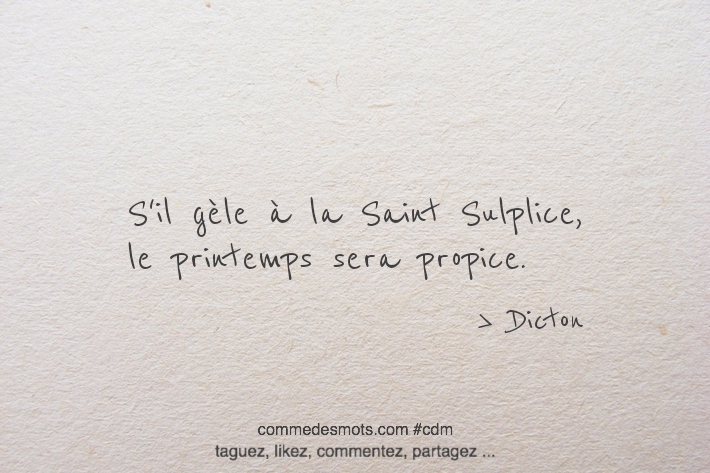 S'il gèle à la Saint Sulplice,
le printemps sera propice.
> Dicton
commedesmots.com #cdm
taguez, likez, commentez, partagez ...